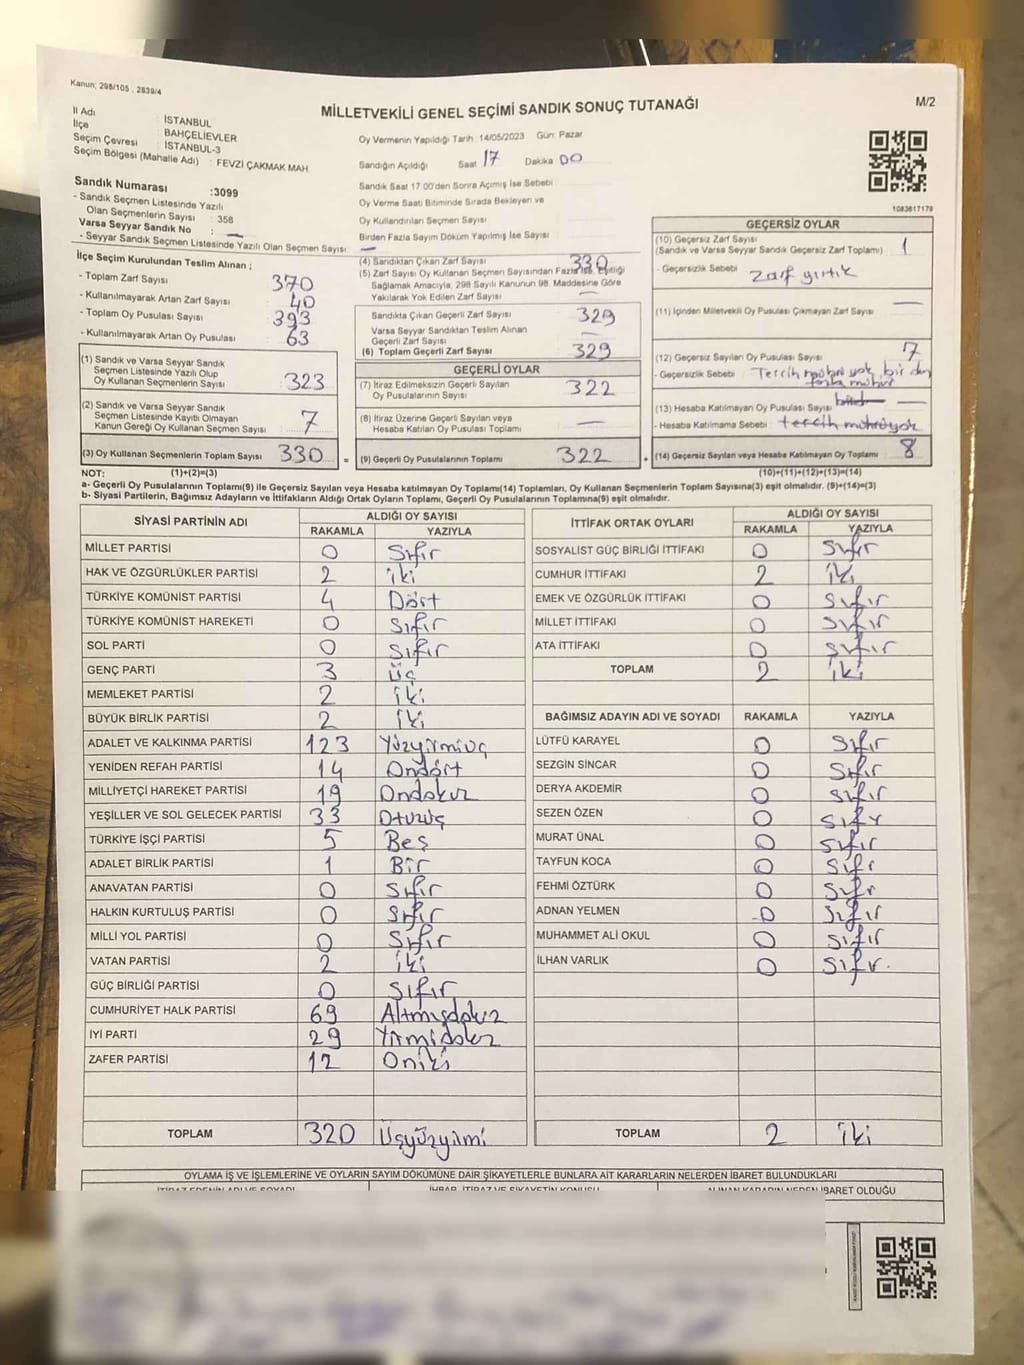 Kanun; 298/105 , 2839/4
MİLLETVEKİLİ GENEL SEÇİMİ SANDIK SONUÇ TUTANAĞI
M/2
İl Adı : İSTANBUL
İlçe : BAHÇELİEVLER
Seçim Çevresi : İSTANBUL-3
Seçim Bölgesi (Mahalle Adı) : FEVZİ ÇAKMAK MAH
Sandık Numarası :3099
- Sandık Seçmen Listesinde Yazılı
Olan Seçmenlerin Sayısı : 358
Varsa Seyyar Sandık No : —
- Seyyar Sandık Seçmen Listesinde Yazılı Olan Seçmen Sayısı : —
Oy Vermenin Yapıldığı Tarih :14/05/2023 Gün: Pazar
Sandığın Açıldığı Saat 17 Dakika 00
Sandık Saat 17:00'den Sonra Açılmış İse Sebebi
Oy Verme Saati Bitiminde Sırada Bekleyen ve
Oy Kullandırılan Seçmen Sayısı
Birden Fazla Sayım Döküm Yapılmış İse Sayısı
1083617179
İlçe Seçim Kurulundan Teslim Alınan ;
- Toplam Zarf Sayısı 370
- Kullanılmayarak Artan Zarf Sayısı 40
- Toplam Oy Pusulası Sayısı 393
- Kullanılmayarak Artan Oy Pusulası 63
(1) Sandık ve Varsa Seyyar Sandık
Seçmen Listesinde Yazılı Olup
Oy Kullanan Seçmenlerin Sayısı 323
(2) Sandık ve Varsa Seyyar Sandık
Seçmen Listesinde Kayıtlı Olmayan
Kanun Gereği Oy Kullanan Seçmen Sayısı 7
(3) Oy Kullanan Seçmenlerin Toplam Sayısı 330
(4) Sandıktan Çıkan Zarf Sayısı 330
(5) Zarf Sayısı Oy Kullanan Seçmen Sayısından Fazla ise, Eşitliği
Sağlamak Amacıyla, 298 Sayılı Kanunun 98. Maddesine Göre
Yakılarak Yok Edilen Zarf Sayısı —
Sandıkta Çıkan Geçerli Zarf Sayısı 329
Varsa Seyyar Sandıktan Teslim Alınan
Geçerli Zarf Sayısı —
(6) Toplam Geçerli Zarf Sayısı 329
GEÇERLİ OYLAR
(7) İtiraz Edilmeksizin Geçerli Sayılan
Oy Pusulalarının Sayısı 322
(8) İtiraz Üzerine Geçerli Sayılan veya
Hesaba Katılan Oy Pusulası Toplamı —
= (9) Geçerli Oy Pusulalarının Toplamı 322
GEÇERSİZ OYLAR
(10) Geçersiz Zarf Sayısı 1
(Sandık ve Varsa Seyyar Sandık Geçersiz Zarf Toplamı)
- Geçersizlik Sebebi Zarf yırtık
(11) İçinden Milletvekili Oy Pusulası Çıkmayan Zarf Sayısı —
(12) Geçersiz Sayılan Oy Pusulası Sayısı 7
- Geçersizlik Sebebi : Tercih mührü yok, bir den
fazla mühür
(13) Hesaba Katılmayan Oy Pusulası Sayısı —
- Hesaba Katılmama Sebebi : tercih mührü yok
(14) Geçersiz Sayılan veya Hesaba Katılmayan Oy Toplamı 8
NOT: (1)+(2)=(3) (10)+(11)+(12)+(13)=(14)
a- Geçerli Oy Pusulalarının Toplamı(9) ile Geçersiz Sayılan veya Hesaba katılmayan Oy Toplamı(14) Toplamları, Oy Kullanan Seçmenlerin Toplam Sayısına(3) eşit olmalıdır. (9)+(14)=(3)
b- Siyasi Partilerin, Bağımsız Adayların ve İttifakların Aldığı Ortak Oyların Toplamı, Geçerli Oy Pusulalarının Toplamına(9) eşit olmalıdır.
SİYASİ PARTİNİN ADI ALDIĞI OY SAYISI
RAKAMLA YAZIYLA
MİLLET PARTİSİ 0 Sıfır
HAK VE ÖZGÜRLÜKLER PARTİSİ 2 iki
TÜRKİYE KOMÜNİST PARTİSİ 4 Dört
TÜRKİYE KOMÜNİST HAREKETİ 0 Sıfır
SOL PARTİ 0 Sıfır
GENÇ PARTİ 3 Üç
MEMLEKET PARTİSİ 2 iki
BÜYÜK BİRLİK PARTİSİ 2 iki
ADALET VE KALKINMA PARTİSİ 123 Yüzyirmiüç
YENİDEN REFAH PARTİSİ 14 Ondört
MİLLİYETÇİ HAREKET PARTİSİ 19 Ondokuz
YEŞİLLER VE SOL GELECEK PARTİSİ 33 Otuzüç
TÜRKİYE İŞÇİ PARTİSİ 5 Beş
ADALET BİRLİK PARTİSİ 1 Bir
ANAVATAN PARTİSİ 0 Sıfır
HALKIN KURTULUŞ PARTİSİ 0 Sıfır
MİLLİ YOL PARTİSİ 0 Sıfır
VATAN PARTİSİ 2 iki
GÜÇ BİRLİĞİ PARTİSİ 0 Sıfır
CUMHURİYET HALK PARTİSİ 69 Altmışdokuz
İYİ PARTİ 29 Yirmidokuz
ZAFER PARTİSİ 12 Oniki
TOPLAM 320 Üçyüzyirmi
İTTİFAK ORTAK OYLARI ALDIĞI OY SAYISI
RAKAMLA YAZIYLA
SOSYALİST GÜÇ BİRLİĞİ İTTİFAKI 0 Sıfır
CUMHUR İTTİFAKI 2 iki
EMEK VE ÖZGÜRLÜK İTTİFAKI 0 Sıfır
MİLLET İTTİFAKI 0 Sıfır
ATA İTTİFAKI 0 Sıfır
TOPLAM 2 iki
BAĞIMSIZ ADAYIN ADI VE SOYADI RAKAMLA YAZIYLA
LÜTFÜ KARAYEL 0 Sıfır
SEZGİN SİNCAR 0 Sıfır
DERYA AKDEMİR 0 Sıfır
SEZEN ÖZEN 0 Sıfır
MURAT ÜNAL 0 Sıfır
TAYFUN KOCA 0 Sıfır
FEHMİ ÖZTÜRK 0 Sıfır
ADNAN YELMEN 0 Sıfır
MUHAMMET ALİ OKUL 0 Sıfır
İLHAN VARLIK 0 Sıfır
TOPLAM 2 iki
OYLAMA İŞ VE İŞLEMLERİNE VE OYLARIN SAYIM DÖKÜMÜNE DAİR ŞİKAYETLERLE BUNLARA AİT KARARLARIN NELERDEN İBARET BULUNDUKLARI
İTİRAZ EDENİN ADI VE SOYADI İHBAR, İTİRAZ VE ŞİKAYETİN KONUSU ALINAN KARARIN NEDEN İBARET OLDUĞU